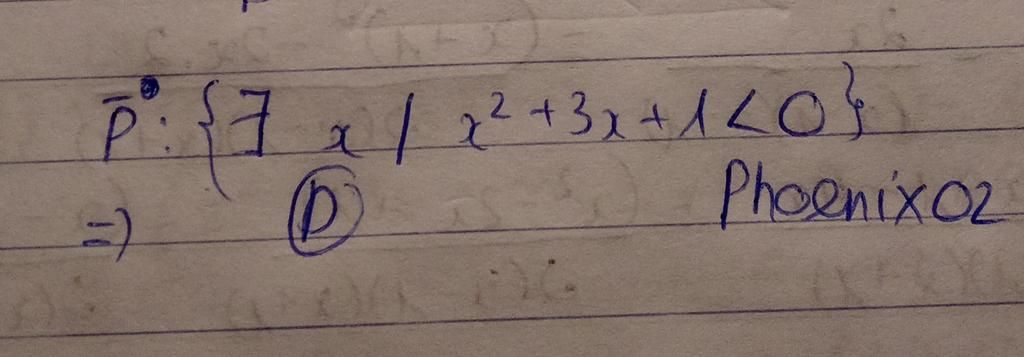 P̄: {∃ x / x² + 3x + 1 < 0}
=> D Phoenix02